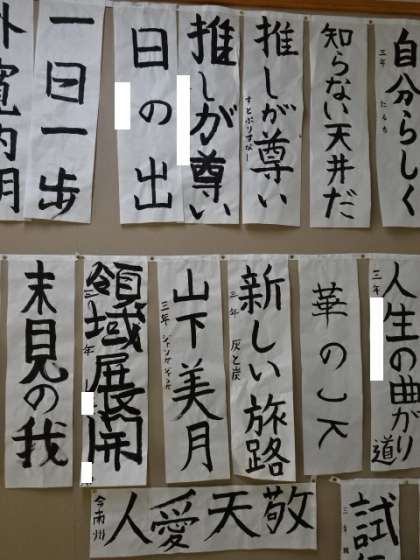 自分らしく
三年
知らない天井だ
推しが尊い
すとぷりすなー
推しが尊い
日の出
一日一歩
外寛内明
人生の曲がり道
三年
華のJK
新しい旅路
三年 灰と炭
山下美月
三年
領域展開
三年
未見の我
敬天愛人
今南州
試
三年